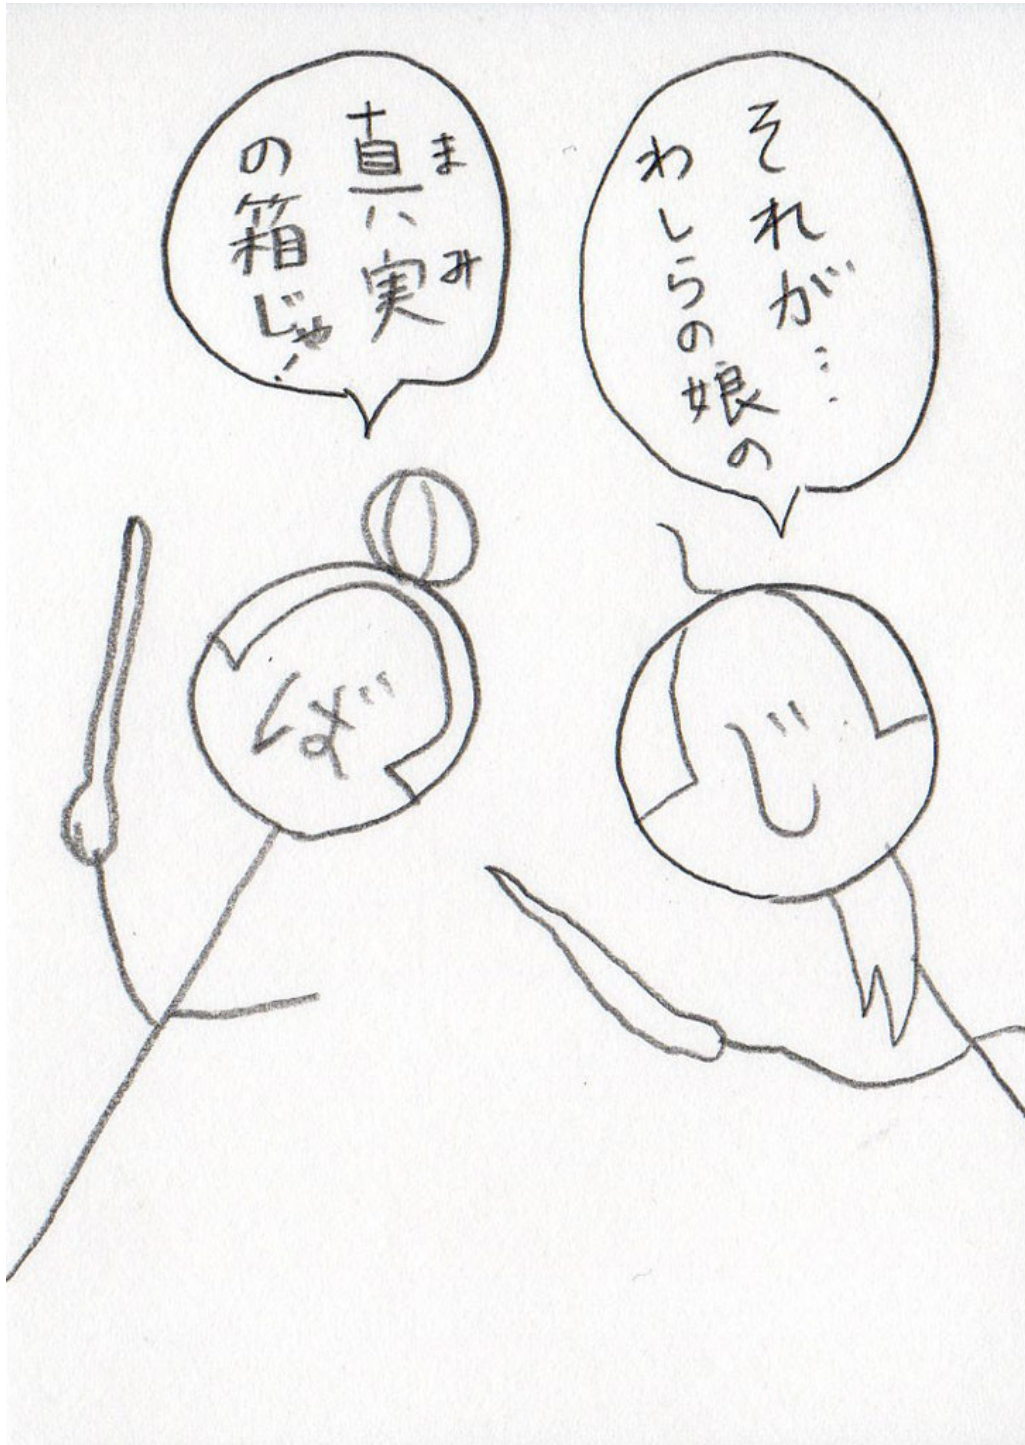 それが…
わしらの娘の
真実
まみ
の箱じゃ!
じ
ば